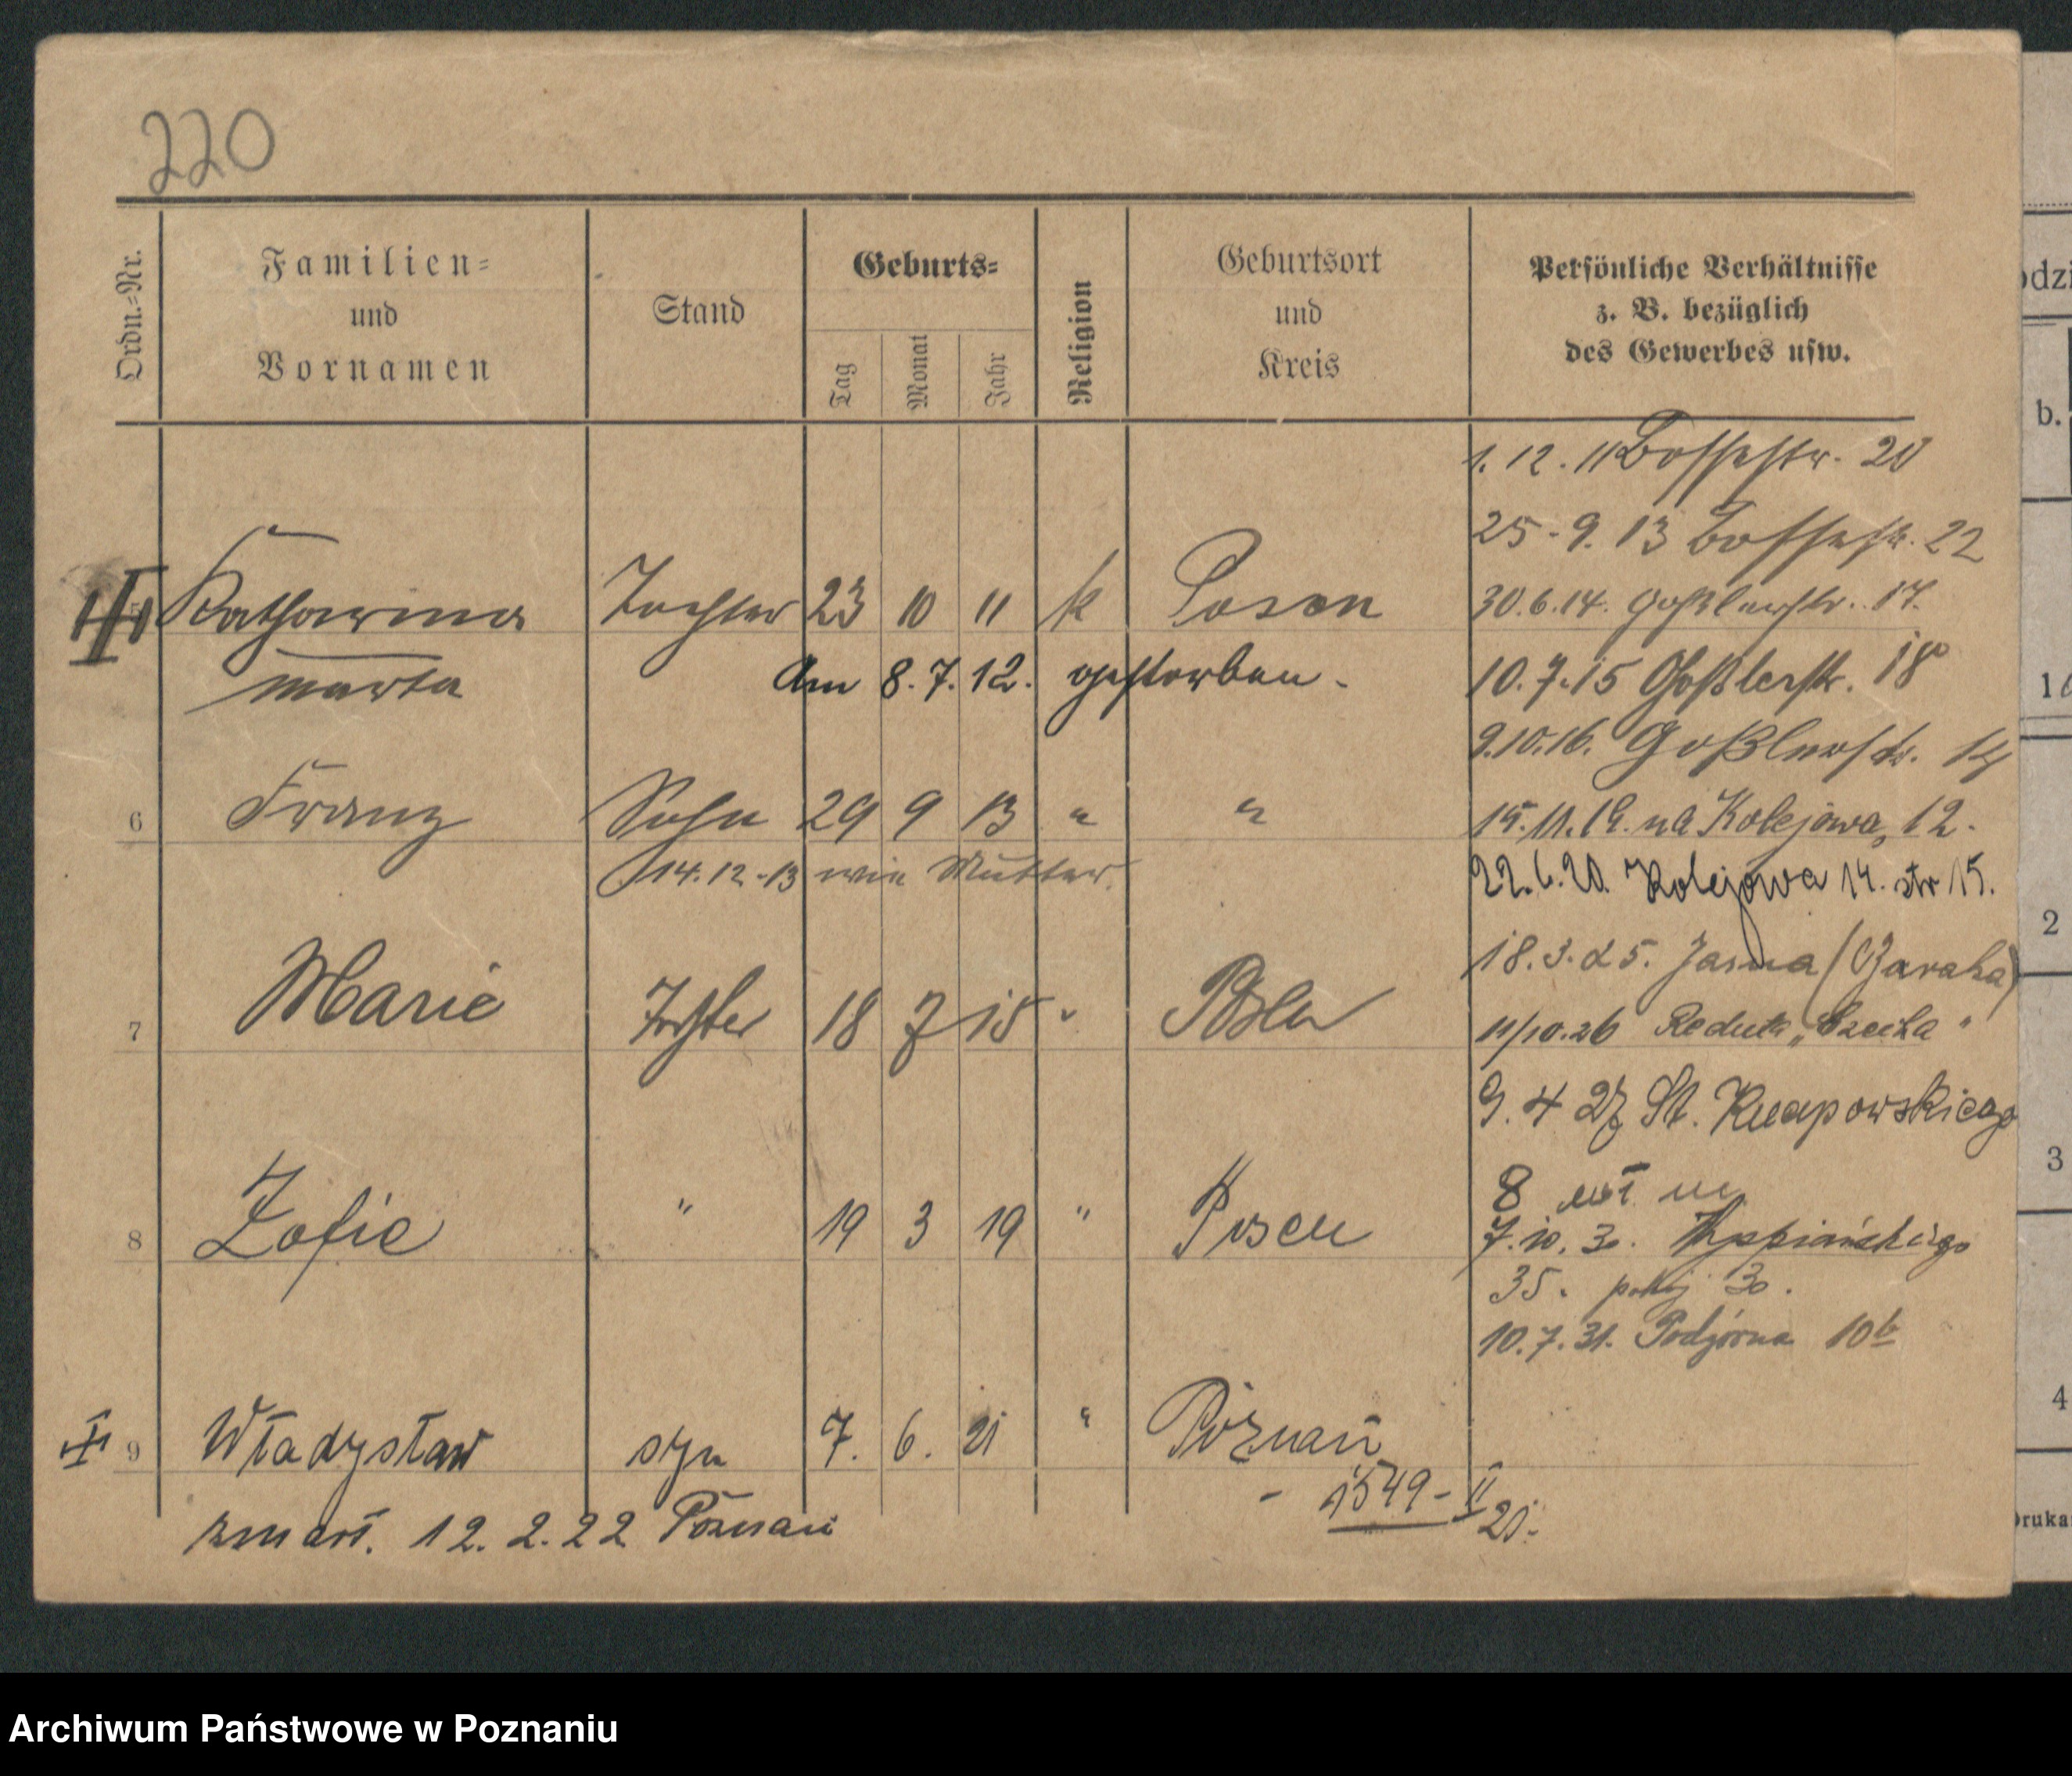 220
Ordn.-Nr.
Familien-
und
Vornamen
Stand
Geburts-
Tag
Monat
Jahr
Religion
Geburtsort
und
Kreis
Persönliche Verhältnisse
z. B. bezüglich
des Gewerbes usw.
1. 12. 11 Bossestr. 20
25-9. 13 Bossestr. 22
5 Katharina Tochter 23 10 11 k Posen
30.6.14. Goßlerstr. 17.
Marta Am 8.7.12. gestorben.
10.7.15 Goßlerstr. 18
9.10.16. Goßlerstr. 14
6 Franz Sohn 29 9 13 " "
15.11.19. na Kolejowa, 12.
14.12.13 wie Mutter.
22.6.20. Kolejowa 14. str 15.
18.3.25. Jasna (Baraka)
7 Marie Tochter 18 7 15 " Posen
11/10.26 Reduta "
9. 4 27 St. Knapowskiego
8 m
8 Zofie " 19 3 19 " Posen
7.10.30. Wyspiańskiego
35. pokój 30.
10.7.31. Podgórna 10b
9 Władysław syn 7. 6. 21 " Poznań
- 1549-II
21.
zmarł. 12. 2. 22 Poznań
odzi
b.
1
2
3
4
Druka
Archiwum Państwowe w Poznaniu